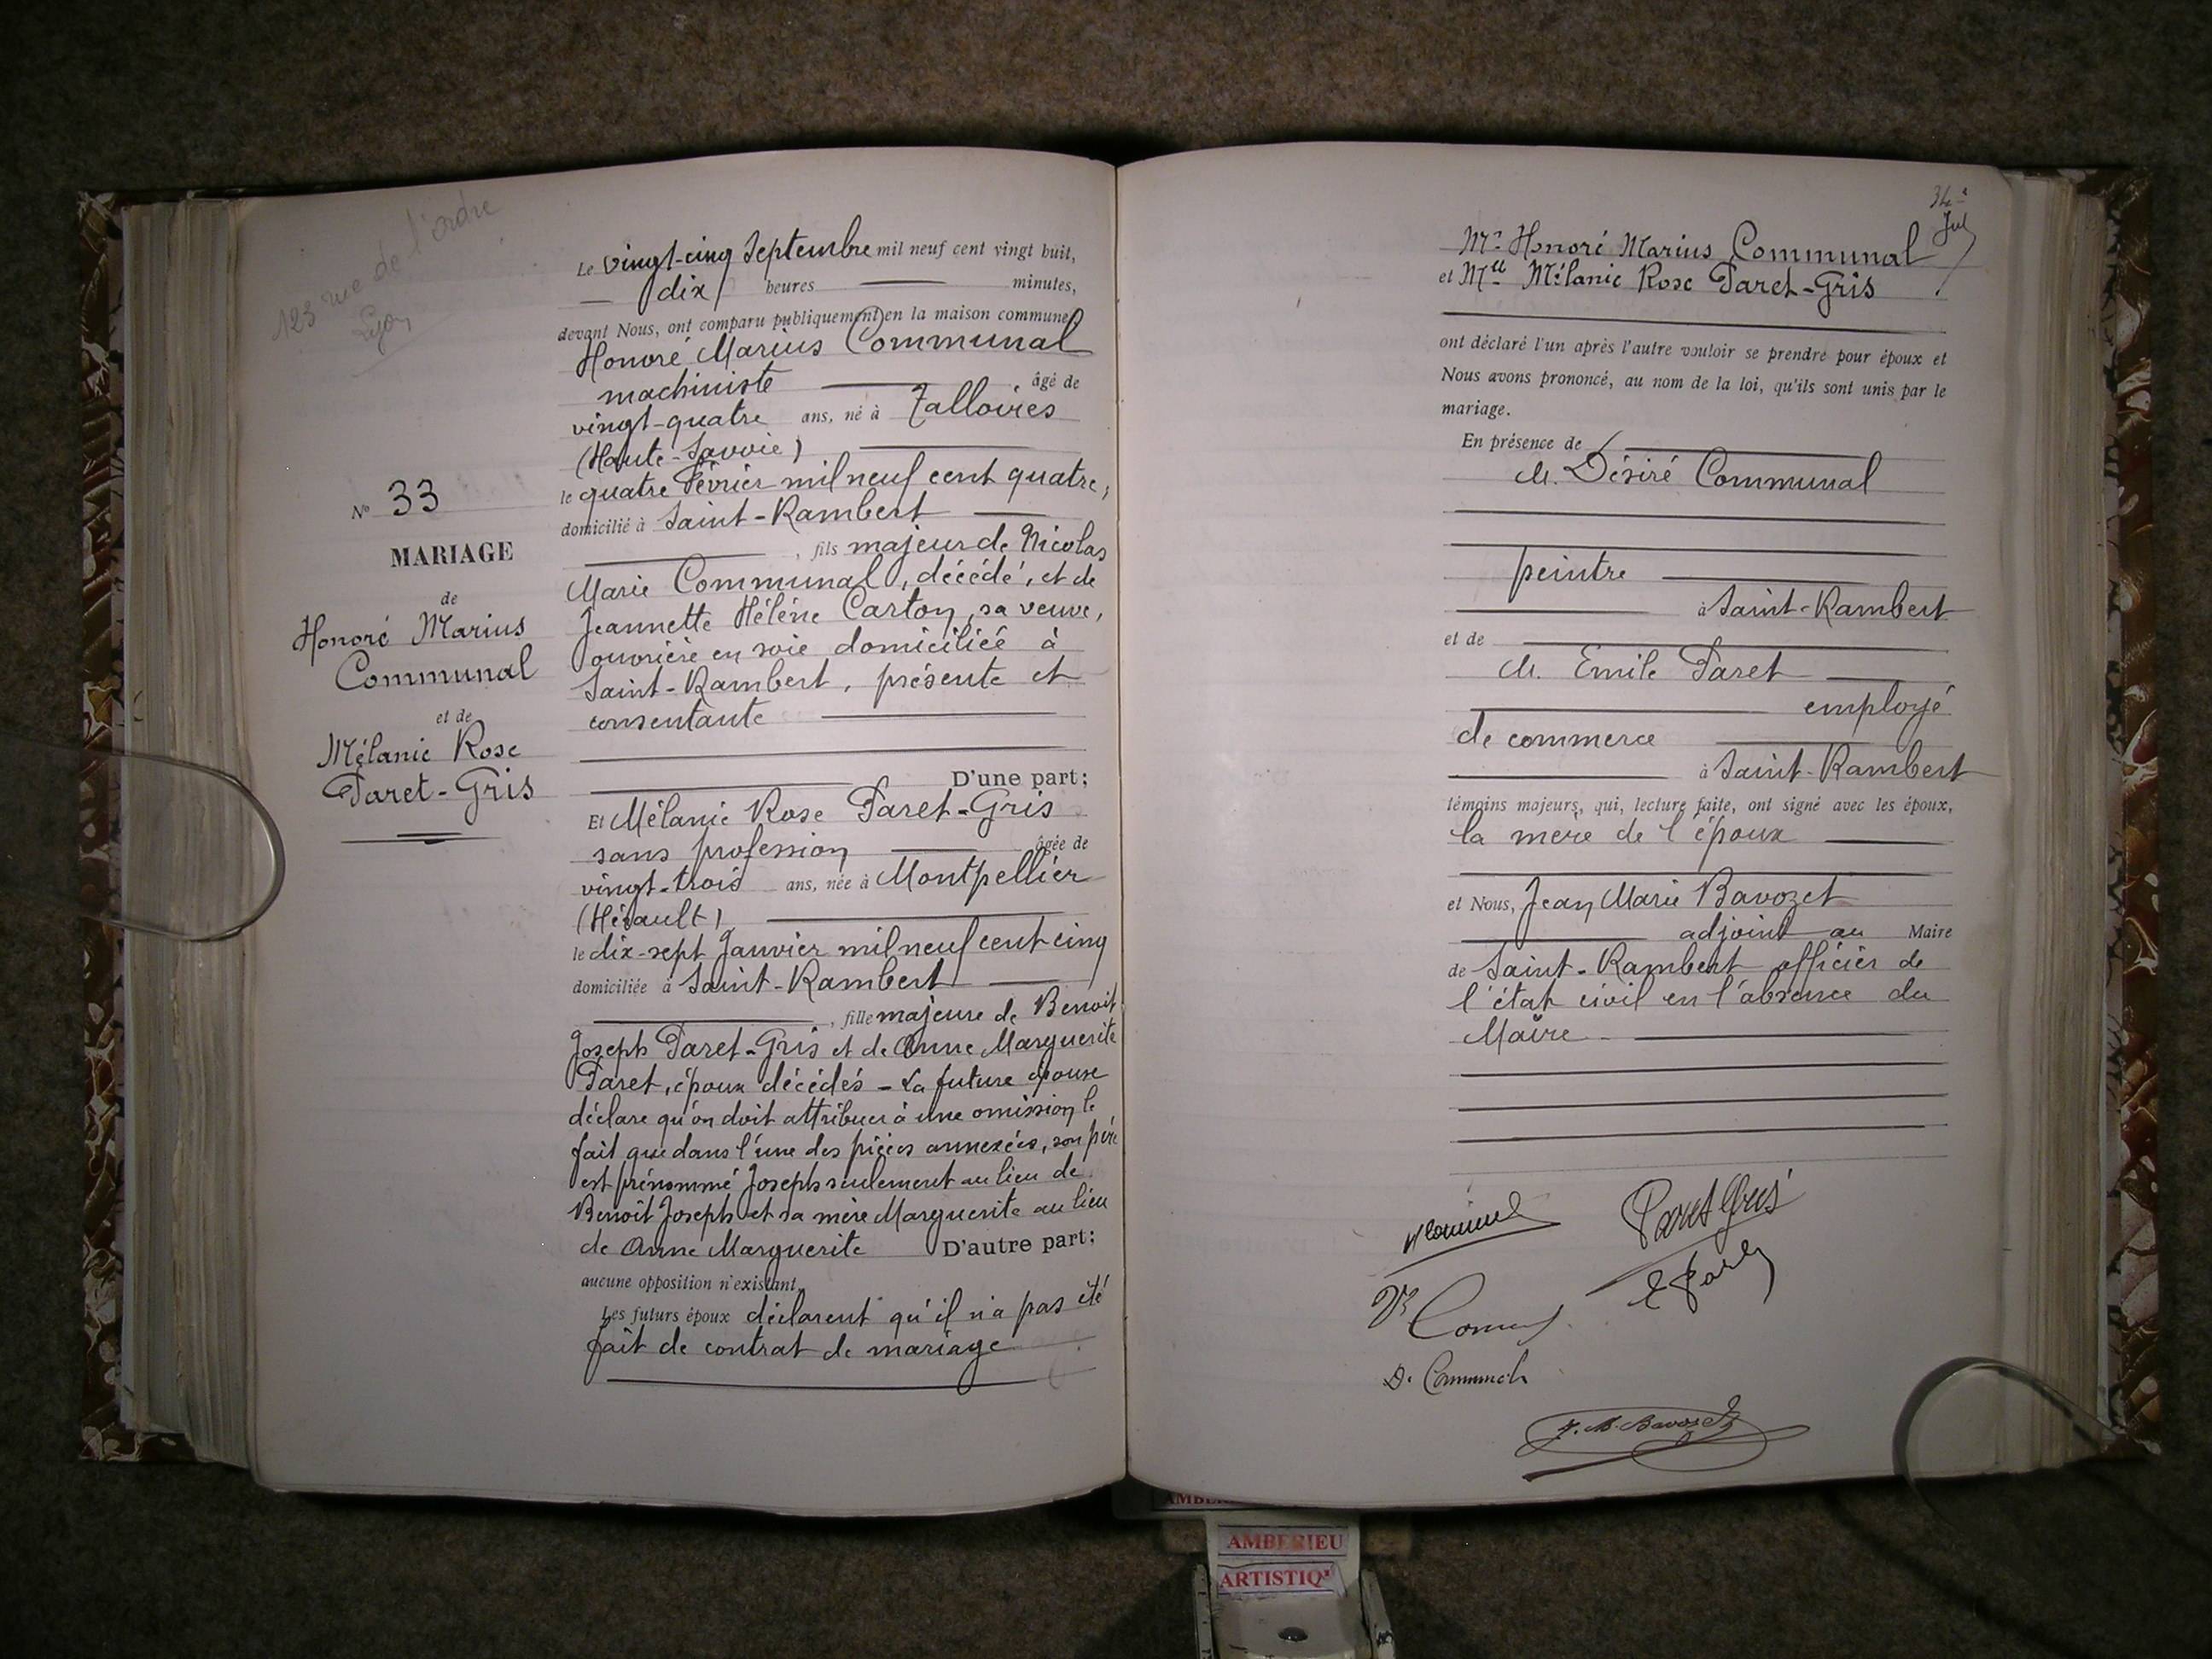 123 rue de l'ordre
Lyon
N° 33
MARIAGE
de
Honoré Marius
Communal
et de
Mélanie Rose
Paret-Gris
Le vingt-cinq Septembre mil neuf cent vingt huit,
dix heures minutes,
devant Nous, ont comparu publiquement en la maison commune,
Honoré Marius Communal
machiniste , âgé de
vingt-quatre ans, né à Talloires
(Haute-Savoie)
le quatre Février mil neuf cent quatre,
domicilié à Saint-Rambert
, fils majeur de Nicolas
Marie Communal, décédé, et de
Jeannette Hélène Carton, sa veuve,
ouvrière en soie domiciliée à
Saint-Rambert, présente et
consentante
D'une part;
Et Mélanie Rose Paret-Gris
sans profession âgée de
vingt-trois ans, née à Montpellier
(Hérault)
le dix-sept Janvier mil neuf cent cinq
domiciliée à Saint-Rambert
, fille majeure de Benoit
Joseph Paret-Gris et de Anne Marguerite
Paret, époux décédés - La future épouse
déclare qu'on doit attribuer à une omission le
fait que dans l'une des pièces annexées, son père
est prénommé Joseph seulement au lieu de
Benoît Joseph et sa mère Marguerite au lieu
de Anne Marguerite D'autre part;
aucune opposition n'existant.
Les futurs époux déclarent qu'il n'a pas été
fait de contrat de mariage
34
Mr Honoré Marius Communal
et Mlle Mélanie Rose Paret-Gris
ont déclaré l'un après l'autre vouloir se prendre pour époux et
Nous avons prononcé, au nom de la loi, qu'ils sont unis par le
mariage.
En présence de
M. Désiré Communal
peintre
à Saint-Rambert
et de
M. Emile Paret
employé
de commerce
à Saint-Rambert
témoins majeurs, qui, lecture faite, ont signé avec les époux,
la mère de l'époux
et Nous, Jean Marie Bavozet
adjoint au Maire
de Saint-Rambert officier de
l'état civil en l'absence du
Maire
Paret Gris
E Paret
Vve Communal
D. Communal
J. M. Bavozet
AMBERIEU
ARTISTIQ